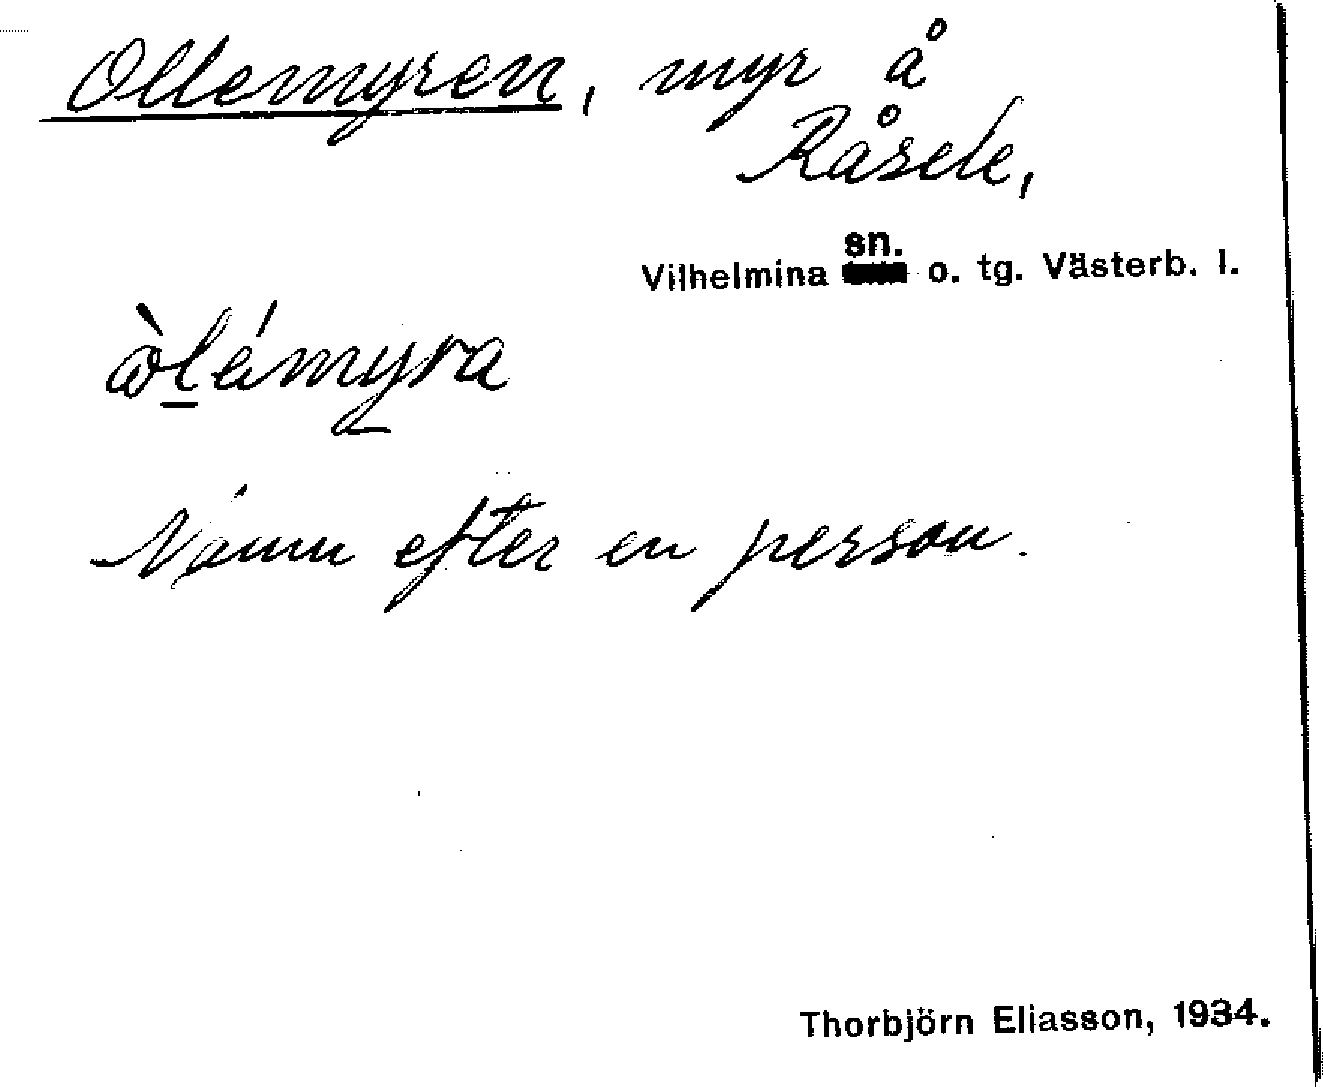 Ollemyren, myr å
Råsele,
Vilhelmina sn. o. tg. Västerb. l.
Namn efter en person.
Thorbjörn Eliasson, 1934.